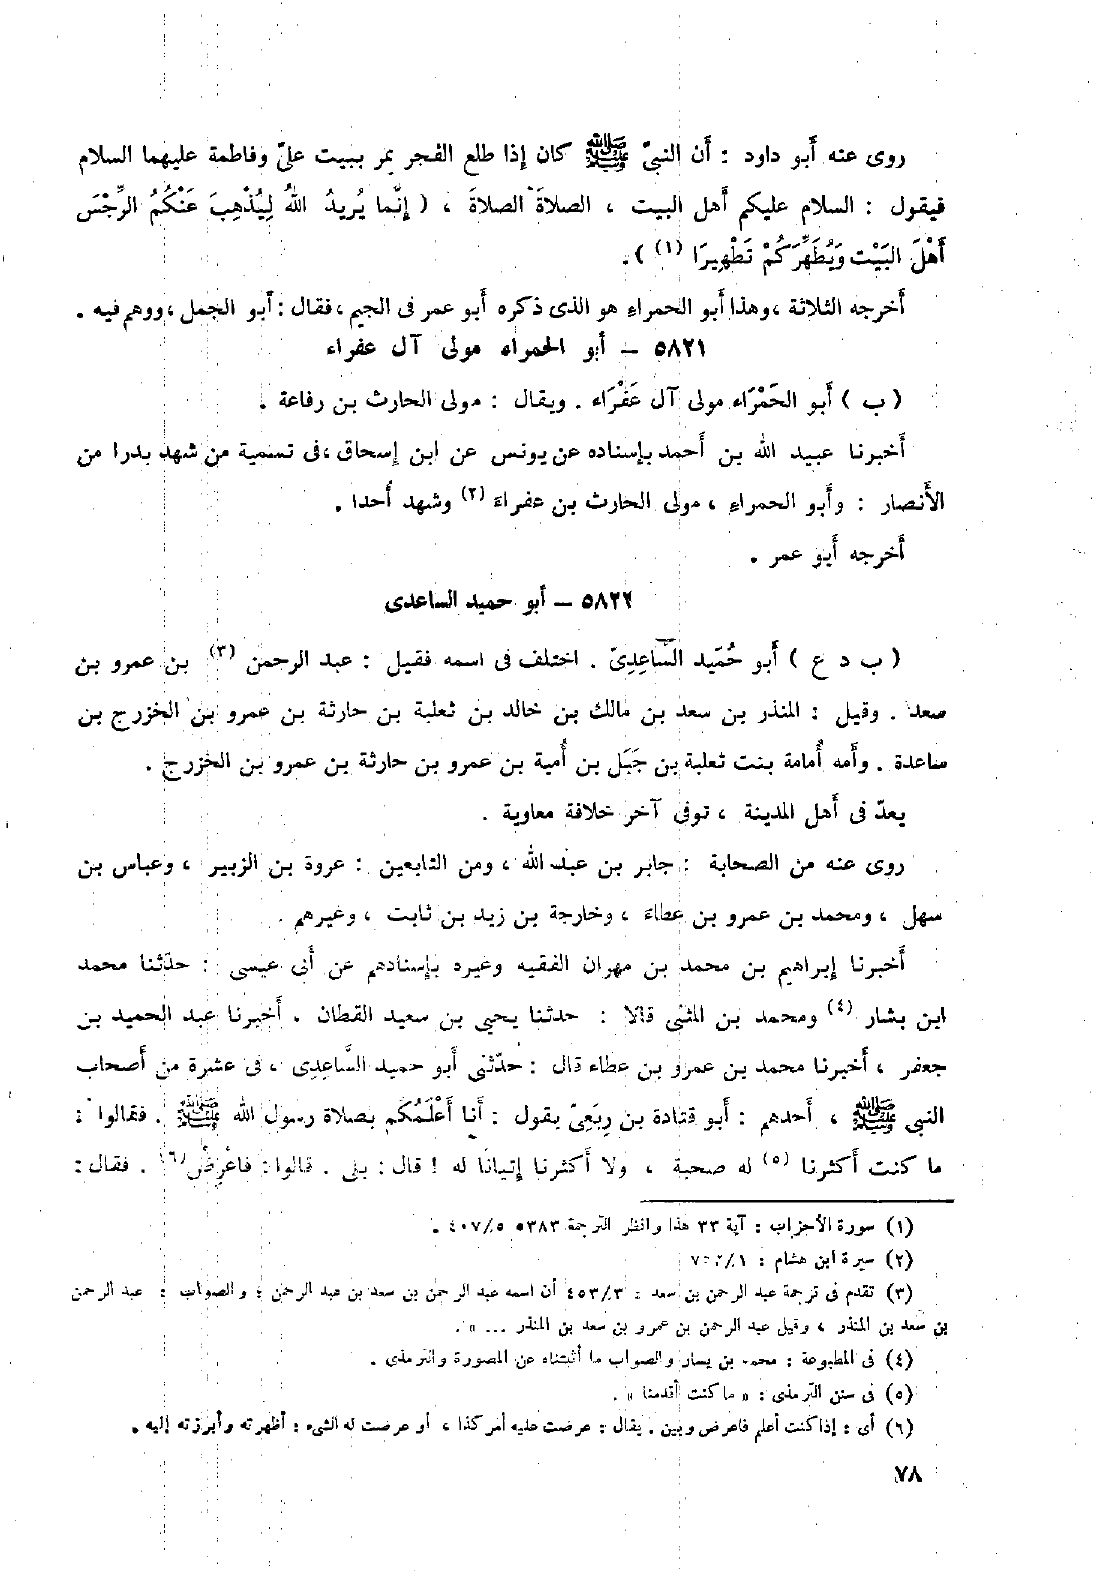 روى عنه أَبو داود : أَن النبيّ ﷺ كان إِذا طلع الفجر يمر ببيت عليّ وفاطمة عليهما السلام
فيقول : السلام عليكم أَهل البيت ، الصلاةَ الصلاةَ ، ( إِنَّما يُرِيدُ اللهُ لِيُذْهِبَ عَنْكُمُ الرِّجْسَ
أَهْلَ البَيْت وَيُطَهِّرَكُمْ تَطْهِيرًا (١) ) .
أَخرجه الثلاثة ، وهذا أَبو الحمراءِ هو الذى ذكره أَبو عمر فى الجيم ، فقال : أَبو الجمل ، ووهم فيه .
٥٨٢١ – أبو الحمراء مولى آل عفراء
( ب ) أَبو الحَمْرَاء مولى آل عَفْرَاء . ويقال : مولى الحارث بن رفاعة .
أَخبرنا عبيد الله بن أَحمد بإِسناده عن يونس عن ابن إِسحاق ، فى تسمية من شهد بدرا من
الأَنصار : وأَبو الحمراءِ ، مولى الحارث بن عفراءَ (٢) وشهد أُحدا .
أَخرجه أَبو عمر .
٥٨٢٢ – أبو حميد الساعدى
( ب د ع ) أَبو حُمَيد السَّاعِدِىّ . اختلف فى اسمه فقيل : عبد الرحمن (٣) بن عمرو بن
سعد . وقيل : المنذر بن سعد بن مالك بن خالد بن ثعلبة بن حارثة بن عمرو بن الخزرج بن
ساعدة . وأُمه أُمامة بنت ثعلبة بن جَبَل بن أُمية بن عمرو بن حارثة بن عمرو بن الخزرج .
يعدّ فى أَهل المدينة ، توفى آخر خلافة معاوية .
روى عنه من الصحابة : جابر بن عبد الله ، ومن التابعين : عروة بن الزبير ، وعباس بن
سهل ، ومحمد بن عمرو بن عطاءَ ، وخارجة بن زيد بن ثابت ، وغيرهم .
أَخبرنا إِبراهيم بن محمد بن مهران الفقيه وغيره بإِسنادهم عن أَبى عيسى : حدّثنا محمد
ابن بشار (٤) ومحمد بن المثنى قالا : حدثنا يحيى بن سعيد القطان . أَخبرنا عبد الحميد بن
جعفر ، أَخبرنا محمد بن عمرو بن عطاء قال : حدّثنى أَبو حميد السَّاعِدِى ، فى عشرة من أَصحاب
النبى ﷺ ، أَحدهم : أَبو قتادة بن رِبَعِىّ يقول : أَنا أَعْلَمُكُم بصلاة رسول الله ﷺ . فقالوا :
ما كنت أَكثرنا (٥) له صحبة ، ولا أَكثرنا إِتيانًا له ! قال : بلى . قالوا : فاعْرِضْ (٦) . فقال :
(١) سورة الأحزاب : آية ٣٣ هذا وانظر الترجمة ٥٣٨٣ ٤٠٧/٥ .
(٢) سيرة ابن هشام :
(٣) تقدم فى ترجمة عبد الرحمن بن سعد : ٤٥٣/٣ أن اسمه عبد الرحمن بن سعد بن عبد الرحمن ؛ والصواب : عبد الرحمن
بن سعد بن المنذر ، وقيل عبد الرحمن بن عمرو بن سعد بن المنذر ... » .
(٤) فى المطبوعة : محمد بن يسار والصواب ما أثبتناه عن المصورة والترمذى .
(٥) فى سنن الترمذى : « ما كنت أقدمنا » .
(٦) أى : إذا كنت أعلم فاعرض وبين . يقال : عرضت عليه أمر كذا ، أو عرضت له الشىء : أظهرته وأبرزته إليه .
٧٨